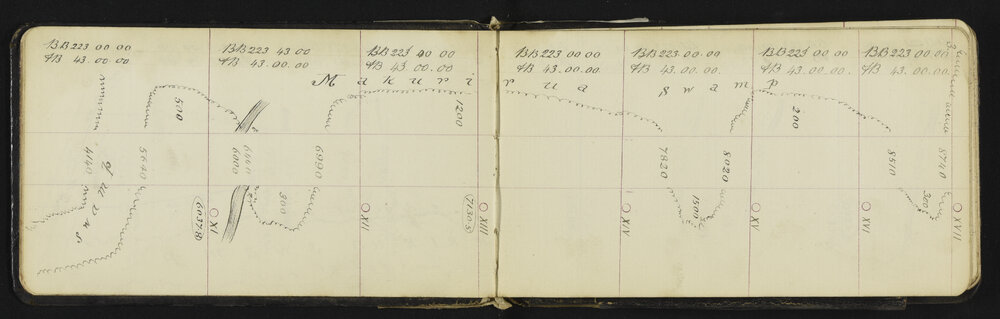 BB 223 00 00
FB 43.00.00
BB 223 43 00
FB 43.00.00
BB 223 00 00
FB 43.00.00
BB 223 00 00
FB 43.00.00
BB 223.00.00
FB 43.00.00
BB 223 00 00
FB 43.00.00.
BB 223 00 00
FB 43.00.00
3
Makuri
rua swamp
570
1200
200
4140
5640
6000
6990
7820
8020
8510
8740
300
1500
300
60378
XI
XII
71305
XIII
XIV
XV
XVI
XVII